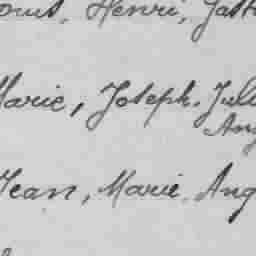 Henri,
Marie, Joseph, Jul
Ang
Jean, Marie, Ang